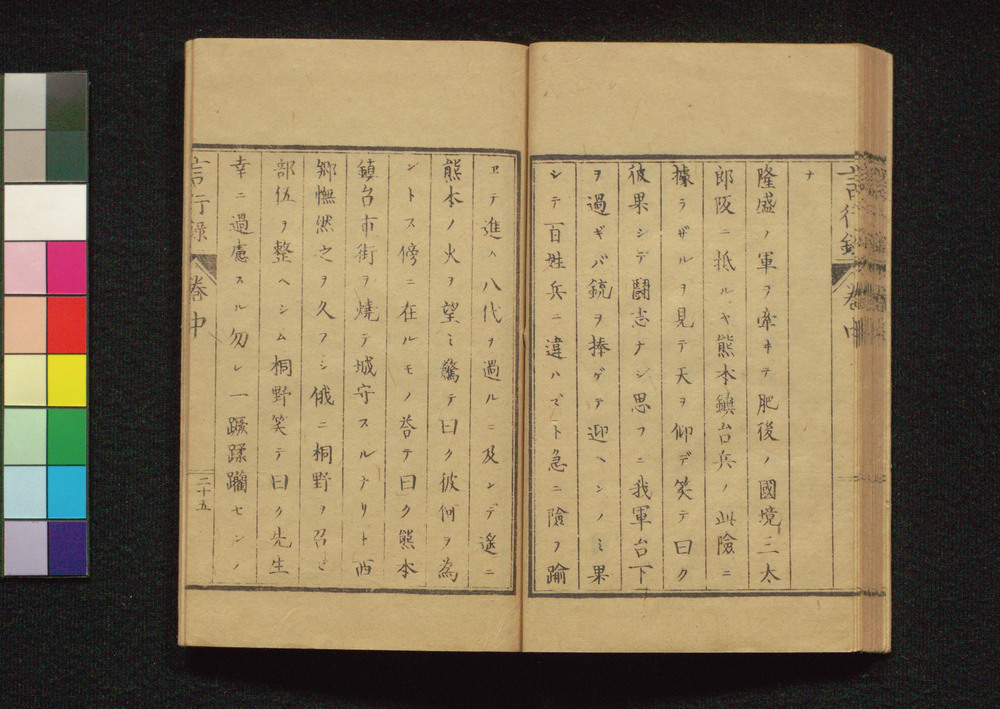 言行録 巻中
ナ
隆盛ノ軍ヲ牽ヰテ肥後ノ國境三太
郎阪ニ抵ルヤ熊本鎮台兵ノ此險ニ
據ラザルヲ見テ天ヲ仰デ笑テ曰ク
彼果シテ鬪志ナシ思フニ我軍台下
ヲ過ギバ銃ヲ捧ゲテ迎ヘンノミ果
シテ百姓兵ニ違ハズト急ニ險ヲ踰
ヱテ進ヘ八代ヲ過ルニ及ンデ遙ニ
熊本ノ火ヲ望ミ驚テ曰ク彼何ヲ為
ントス傍ニ在ルモノ答テ曰ク熊本
鎮台市街ヲ燒テ城守スルナリト西
郷憮然之ヲ久フシ俄ニ桐野ヲ召シ
部伍ヲ整ヘシム桐野笑テ曰ク先生
幸ニ過慮スル勿レ一蹶蹂躙センノ
言行録 巻中
二十五